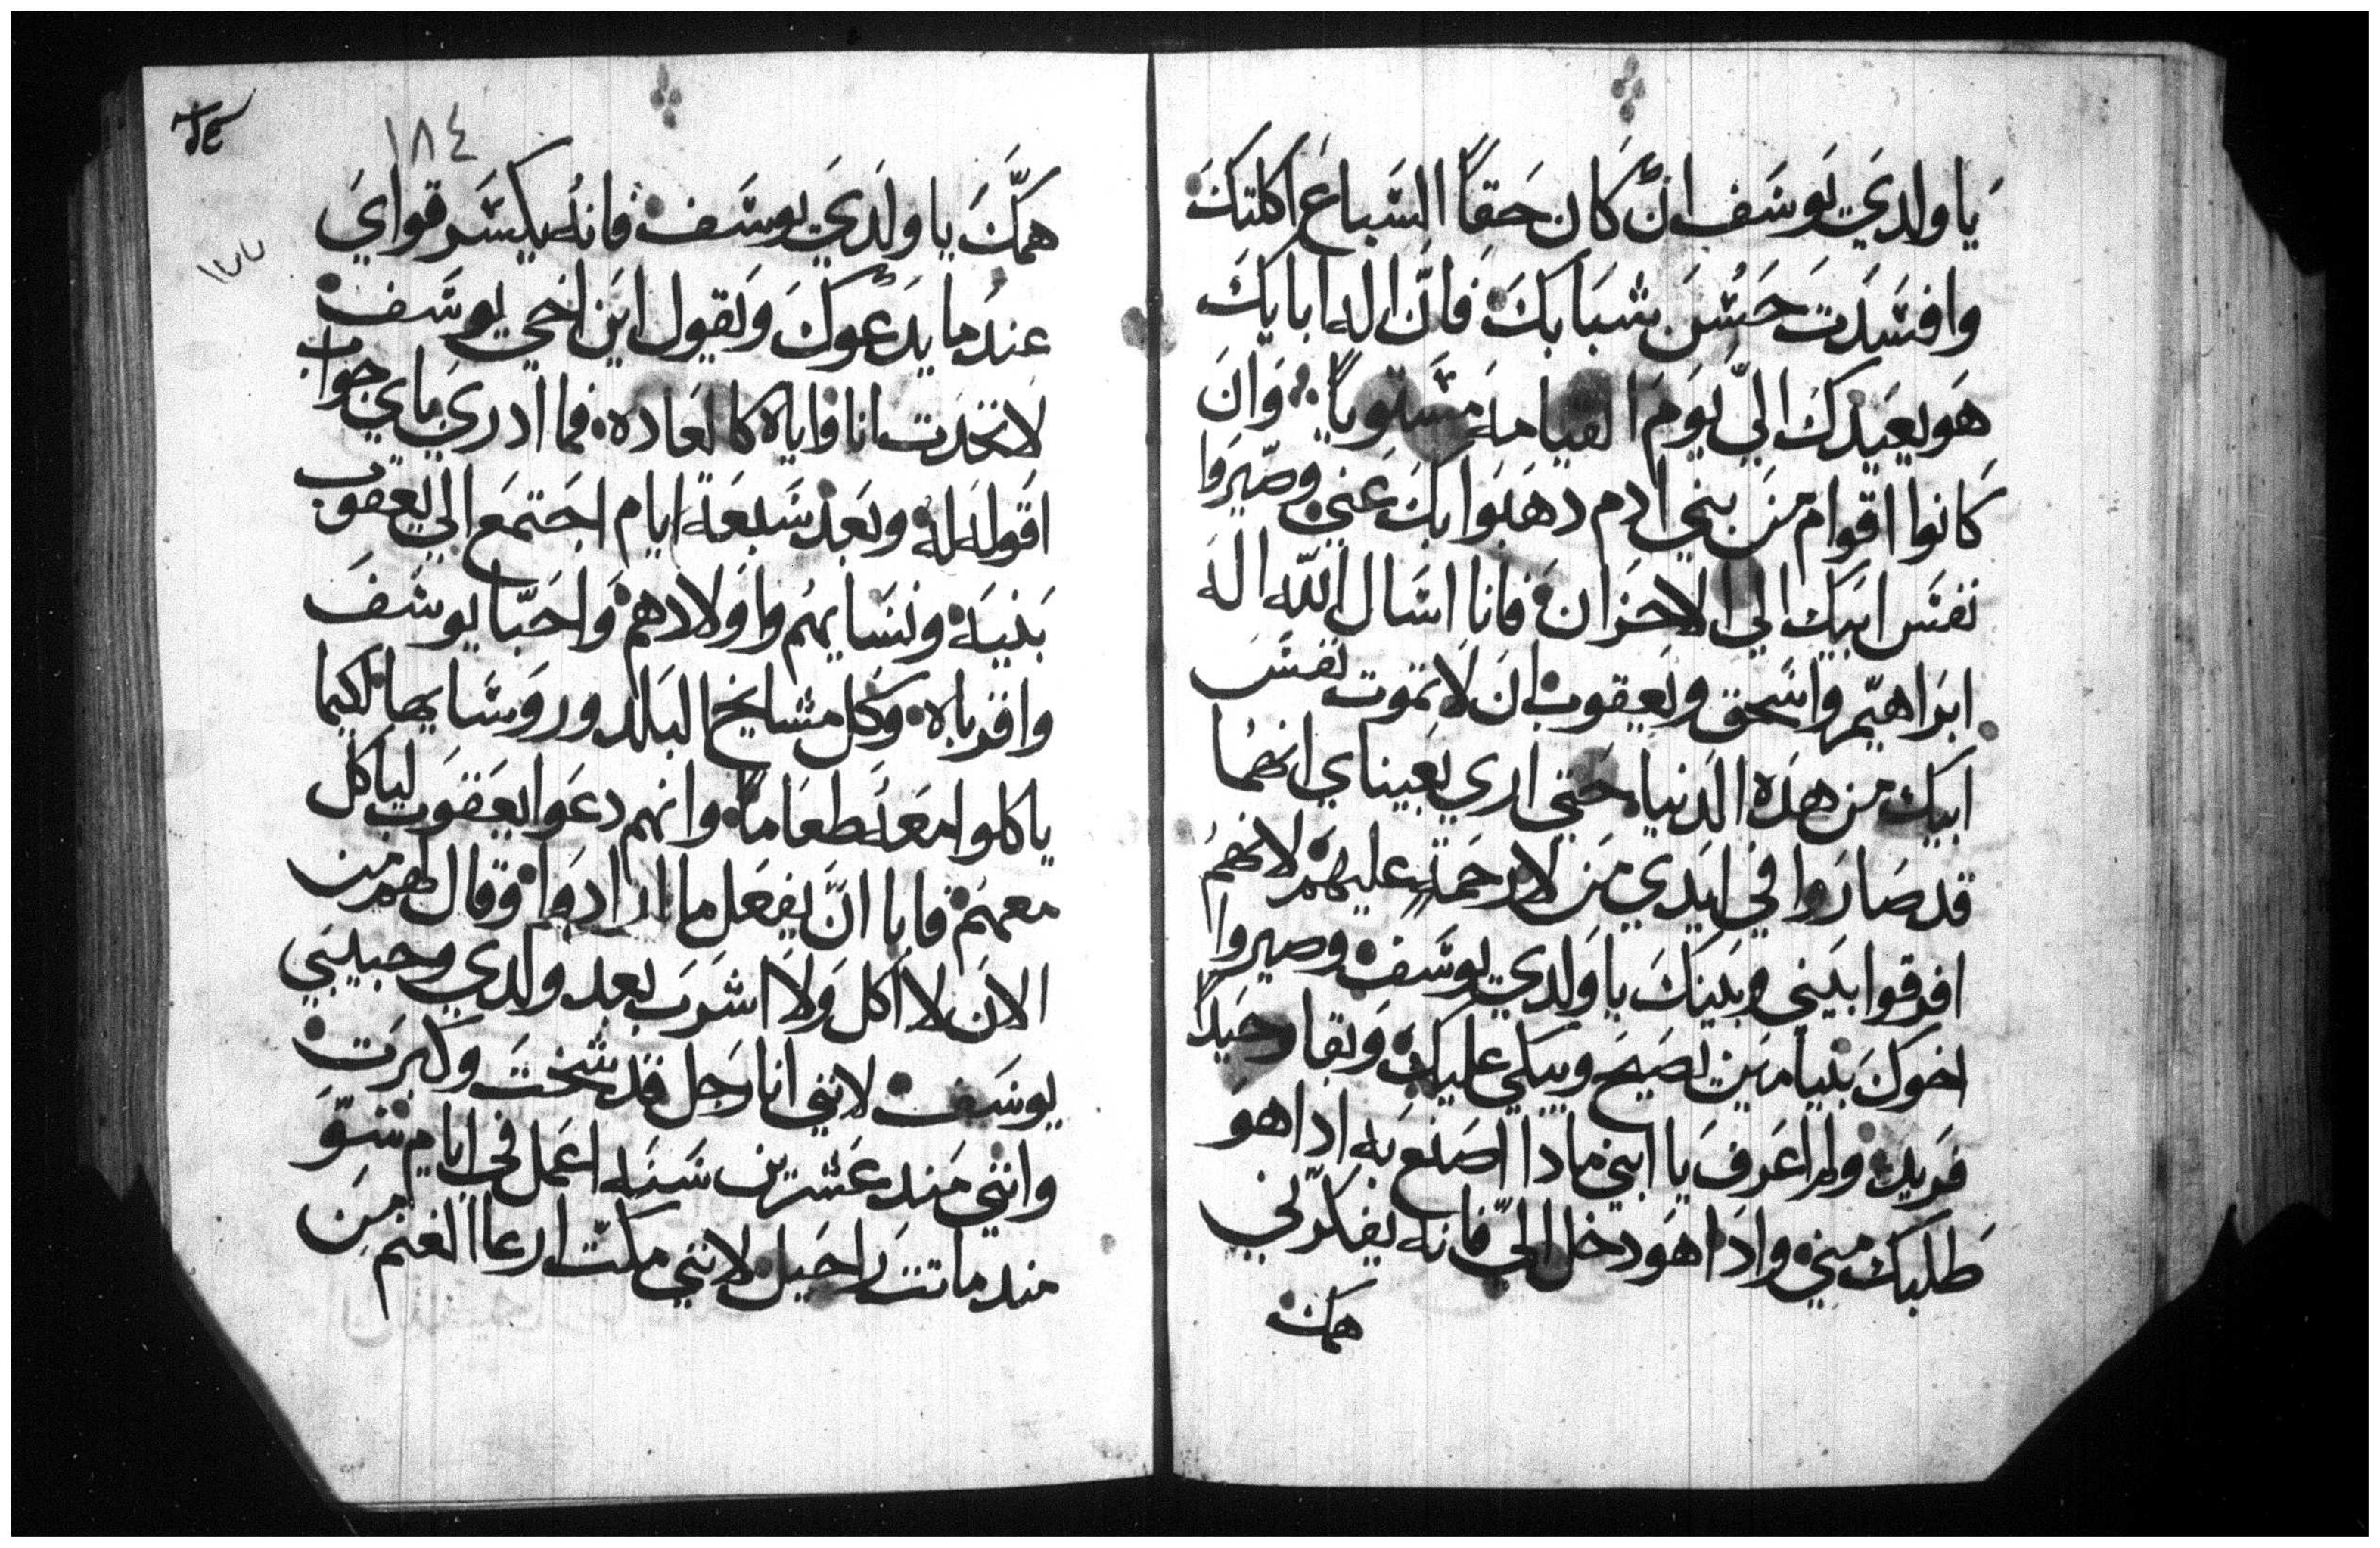 يا ولدي يوسف ان كان حقاً السباع اكلتك
وافسدت حسن شبابك فان اله ابايك
هو يعيدك الي يوم القيامه مستوياً وان
كانوا اقوام من بني ادم دهبوا بك عني وصيروا
نفس ابيك الي الاحزان فانا اسال الله اله
ابراهيم واسحق ويعقوب ان لا تموت نفس
ابيك من هذه الدنيا حتي اري بعيناي انهما
قد صاروا في ايدي من لا رحمة عليهم لانهم
افرقوا بيني وبينك يا ولدي يوسف وصيروا
اخوك بنيامين يصيح ويبكي عليك وبقا وحيداً
فريد ولم اعرف يا ابني مادا اصنع به ادا هو
طلبك مني وادا هو دخل الي فانه يفكرني
همك
١٨٤
١٧٧
همك يا ولدي يوسف فانه يكسر قواي
عندما يدعوك ويقول اين اخي يوسف
لاتحدت انا واياه كالعاده فما ادري باي جواب
اقوله له وبعد سبعة ايام اجتمع الي يعقوب
بنيه ونسايهم واولادهم واحبا يوسف
واقرباه وكل مشايخ البلد وروسايها لكيما
ياكلوا معه طعاماً وانهم دعوا يعقوب لياكل
معهم فابا ان يفعل ما ارادوا وقال لهم من
الان لا اكل ولا اشرب بعد ولدي وحبيبي
يوسف لانني انا رجل قد شخت وكبرت
وانني مند عشرين سنه اعمل في ايام شتو
مند ماتت راحيل لانني مكت ارعا الغنم من